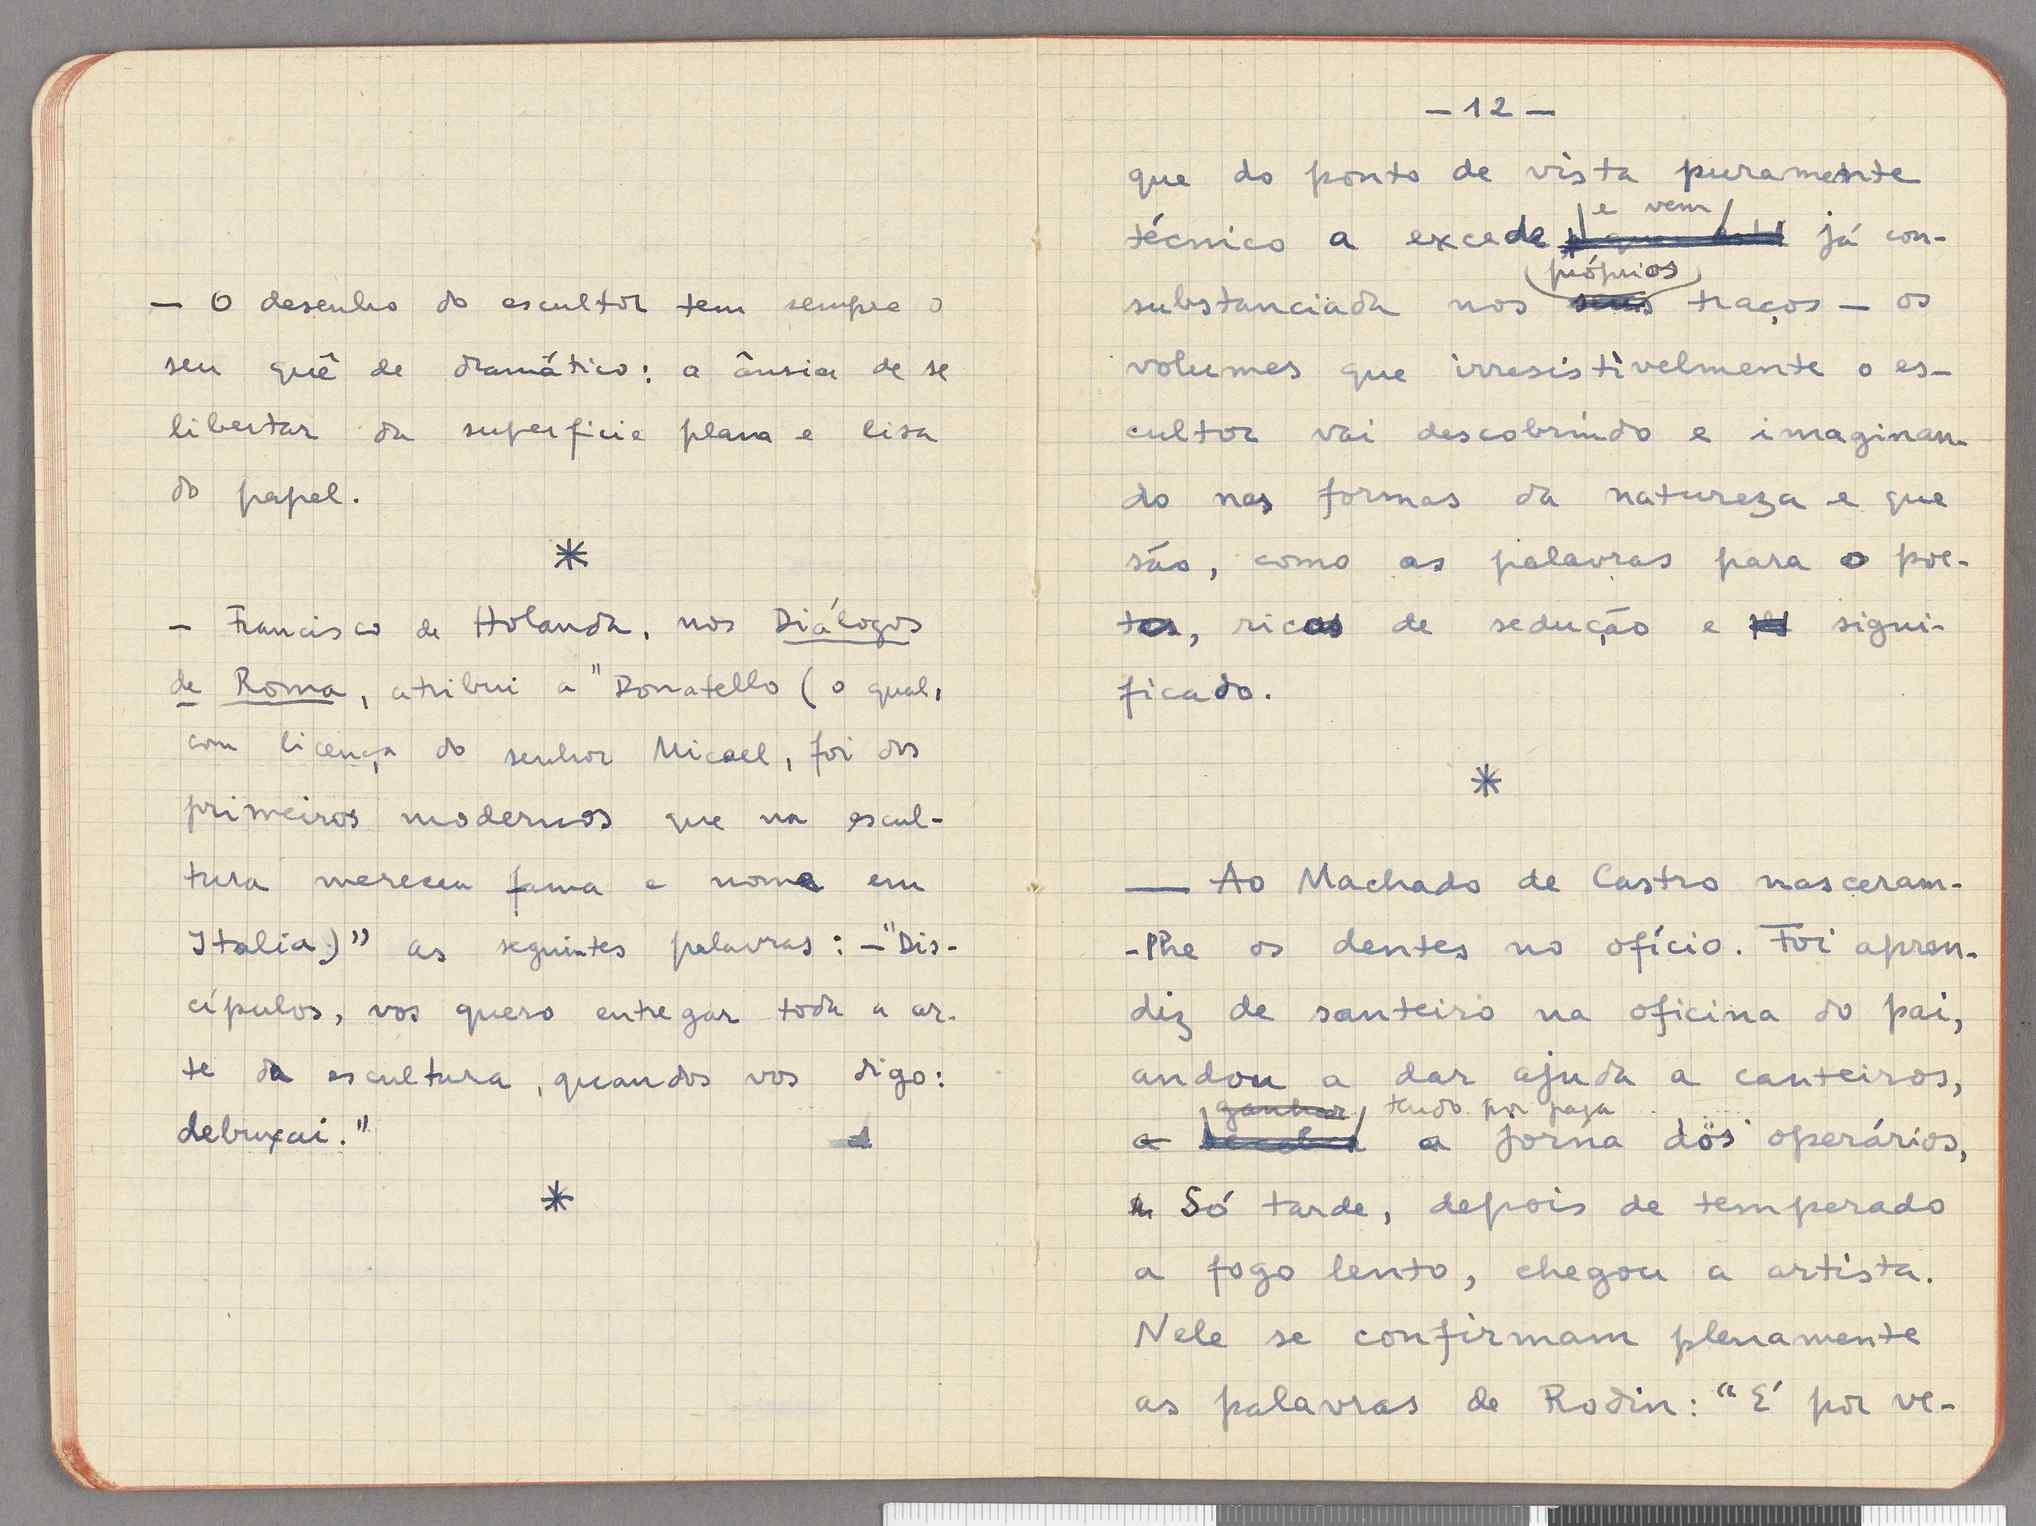 — O desenho do escultor tem sempre o
seu quê de dramático: a ânsia de se
libertar da superficie plana e lisa
do papel.
*
— Francisco de Holanda, nos Diálogos
de Roma, atribui a "Donatello (o qual,
com licença do senhor Micael, foi dos
primeiros modernos que na escul-
tura mereceu fama e nome em
Italia)" as seguintes palavras: —"Dis-
cípulos, vos quero entregar toda a ar-
te da escultura, quando vos digo:
debuxai."
*
— 12 —
que do ponto de vista puramente
e vem
técnico a excede já con-
próprios
substanciada nos seus traços — os
volumes que irresistivelmente o es-
cultor vai descobrindo e imaginan-
do nas formas da natureza e que
são, como as palavras para o poe-
ta, ricas de sedução e signi-
ficado.
*
— Ao Machado de Castro nasceram-
-lhe os dentes no ofício. Foi apren-
diz de santeiro na oficina do pai,
andou a dar ajuda a canteiros,
ganhar tendo por paga
e a jorna dos operários,
Só tarde, depois de temperado
a fogo lento, chegou a artista.
Nele se confirmam plenamente
as palavras de Rodin: "É por ve-